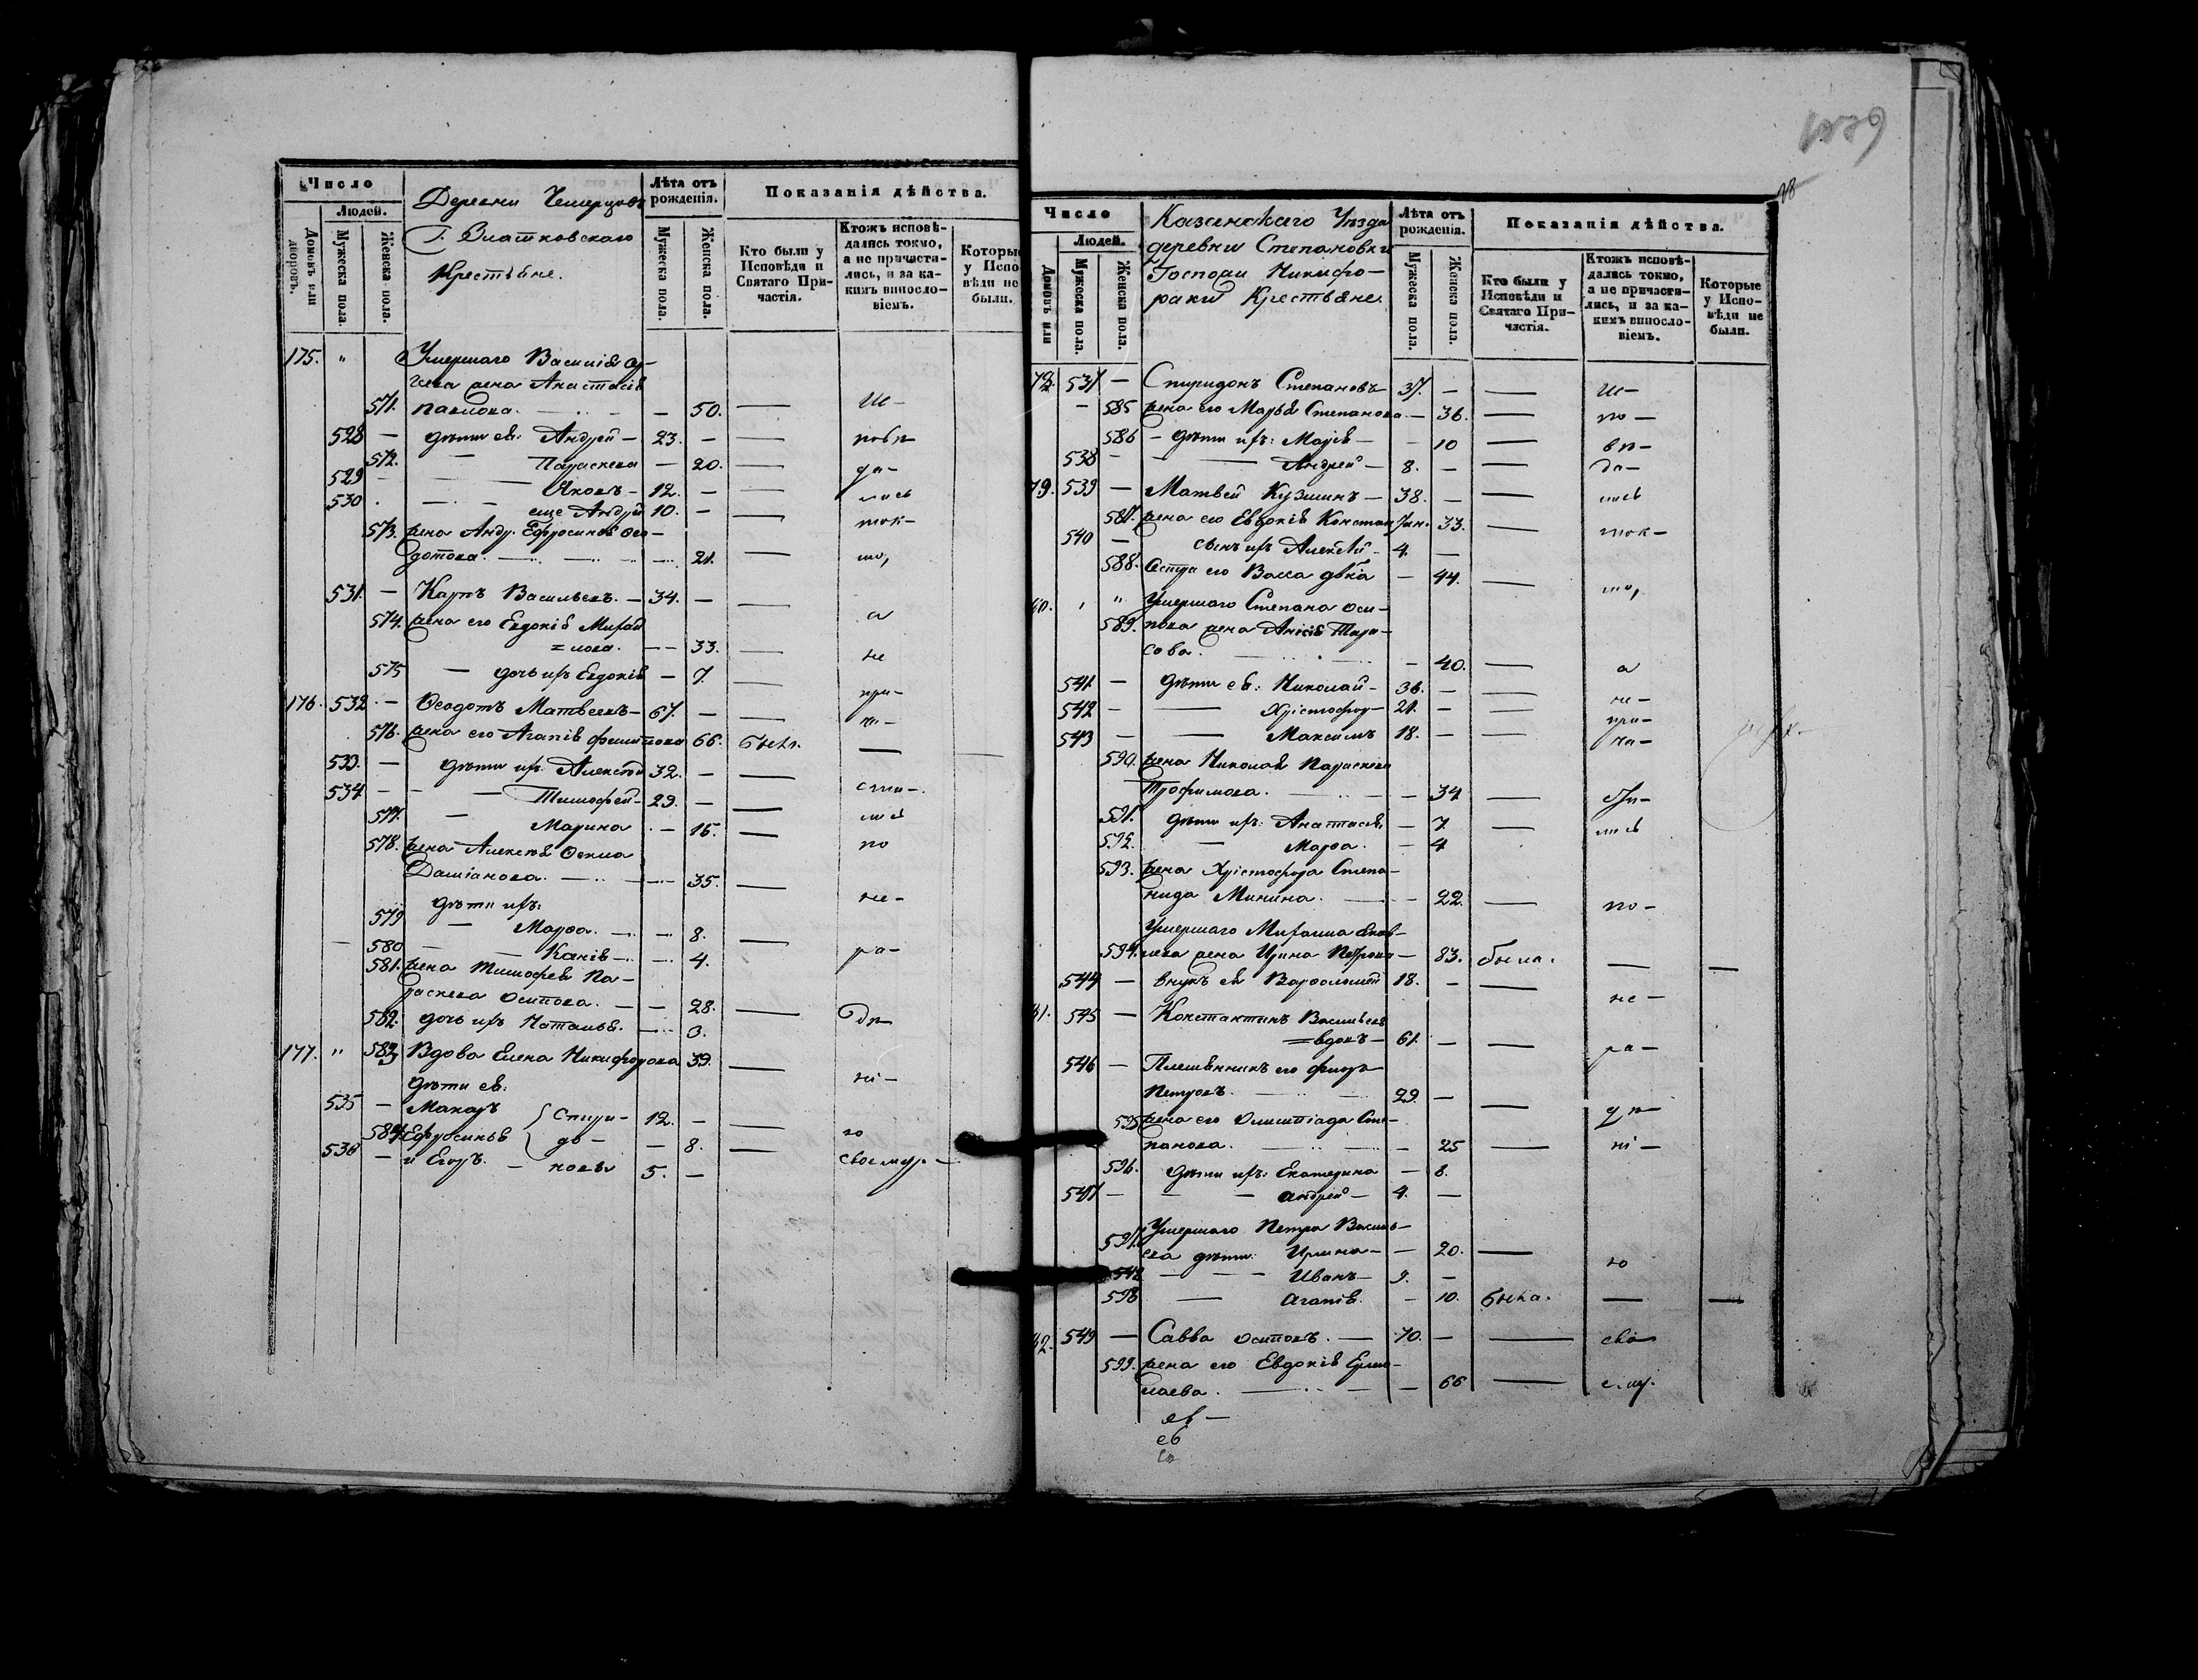 Число
Людей.
Домовъ или дворовъ.
Мужеска пола.
Женска пола.
Деревни
Г. Влатковскаго
Крестьяне.
Лѣта отъ рожденія.
Мужеска пола.
Женска пола.
Показанія дѣйства.
Кто были у Исповѣди и Святаго Причастія.
Ктожъ исповѣдались токмо, а не причастились, и за какимъ винословіемъ.
Которые у Испо-вѣди не были.
175. " Умершаго Василія
жена Анастасія
571. Павлова. — 50. — Ис-
528 — дѣти ея: Андрей — 23. — — повѣ-
572. — Параскева — 20. — да-
529 — Яковъ — 12. — — лись
530 — еще Андрей 10. — — ток-
573. жена Андр. Ефросинія Ѳео-
дотова. — 21. — мо,
531. — Карпъ Васильевъ. — 34. — — а
574. жена его Евдокія Михай
=лова. — 33. — не
575 — дочь ихъ Евдокія — 7. — при-
176. 532. — Ѳеодотъ Матвеевъ — 67. — — ча-
576. жена его Агапія Филиппова 66. была. —
533. — дѣти ихъ: Алексѣй 32. — — сти-
534 — — Тимофей — 29. — — лись
577. — Марина — 15. — по
578. жена Алексѣя Ѳекла
Даміанова. — 35. — не-
дѣти ихъ:
579 — Марѳа. — 8. — ра-
580 — — 4.
581. жена Тимофея Па-
раскева Осипова. — 28. — дѣ-
582. дочь ихъ Наталья. — 3.
177. " 583 Вдова Елена Никифорова 39. — ні-
дѣти ея:
535 — Макаръ Спири- 12. — — ю
584 Ефросинья до- — 8. — своему. —
536 — и Егоръ. — новы 5. —
78
Число
Людей.
Домовъ или
Мужеска пола.
Женска пола.
Казанскаго Уѣзда
деревни Степановки
Госпожи Никифо-
раки Крестьяне.
Лѣта отъ рожденія.
Мужеска пола.
Женска пола.
Показанія дѣйства.
Кто были у Исповѣди и Святаго Причастія.
Ктожъ исповѣдались токмо, а не причастились, и за какимъ винословіемъ.
Которые у Испо-вѣди не были.
78. 537 — Спиридонъ Степановъ 37. — — Ис-
— 585 жена его Марья Степанова. — 36. — по-
586 — дѣти ихъ: Марія — — 10 — вѣ-
538 — — Андрей — 8. — — да-
79. 539 — Матвей Кузминъ — 38. — — лись
587. жена его Евдокія Констан 33. — ток-
540 — сынъ ихъ Алексѣй — 4. —
588. Сестра его Васса дѣвка — 44. — мо,
80. " Умершаго Степана Оси-
589. пова жена Анисія Тара-
сова. — 40. — а
541. — дѣти ея: Николай — 36. — — не-
542 — — Христофоръ — 21. — — при-
543 — — Максимъ 18. — — ча-
590. жена Николая Параскева
Трофимова. — 34 — сти-
591. дѣти ихъ: Анастасія — 7. — лись
592. — Марѳа. — 4
593. жена Христофора Степа-
нида Минина. — 22. — по-
Умершаго Михаила Яков-
594. лева жена Ирина Петрова — 83. была. — —
544 — внукъ ея Варѳоломей 18. — — не-
81. 545 — Константинъ Васильевъ
=вдовъ — 61. — — ра-
546 — Племянникъ его Ѳиодр
Петровъ. — 29. — — дѣ-
595 жена его Олимпіада Сте-
панова. — 25 — ні-
596. дѣти ихъ: Екатерина — 8.
547 — — Андрей — 4. —
Умершаго Петра Василь-
597. ева дѣти: Ирина — — 20. — ю
548 — — Иванъ — 9. —
598 — Агапія. — 10. была. — —
82. 549 — Савва Осиповъ. — 70. — — сво
599. жена его Евдокія Ермо-
лаева. — 66 — ему.